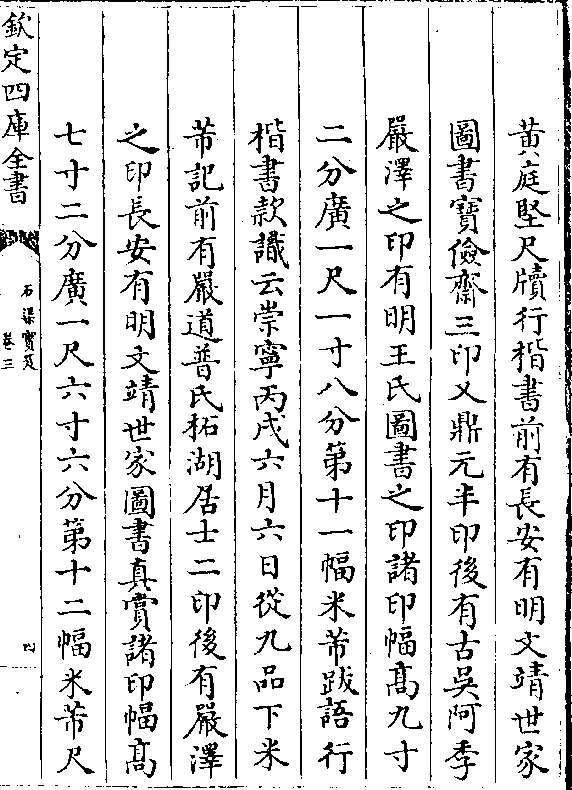 黃庭堅尺牘行楷書前有長安有明文靖世家
圖書寶儉齋三印又鼎元半印後有古吳阿季
嚴澤之印有明王氏圖書之印諸印幅髙九寸
二分廣一尺一寸八分第十一幅米芾跋語行
楷書款識云崇寧丙戌六月六日從九品下米
芾記前有嚴道普氏柘湖居士二印後有嚴澤
之印長安有明文靖世家圖書真賞諸印幅髙
七寸二分廣一尺六寸六分第十二幅米芾尺
欽定四庫全書
石渠寶笈
卷三